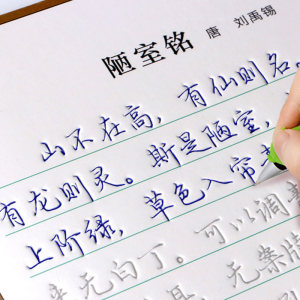 陋室铭 唐 刘禹锡
山不在高，有仙则名。
有龙则灵。斯是陋室，
上阶绿，草色入帘
来无白丁。可以调
无案牍